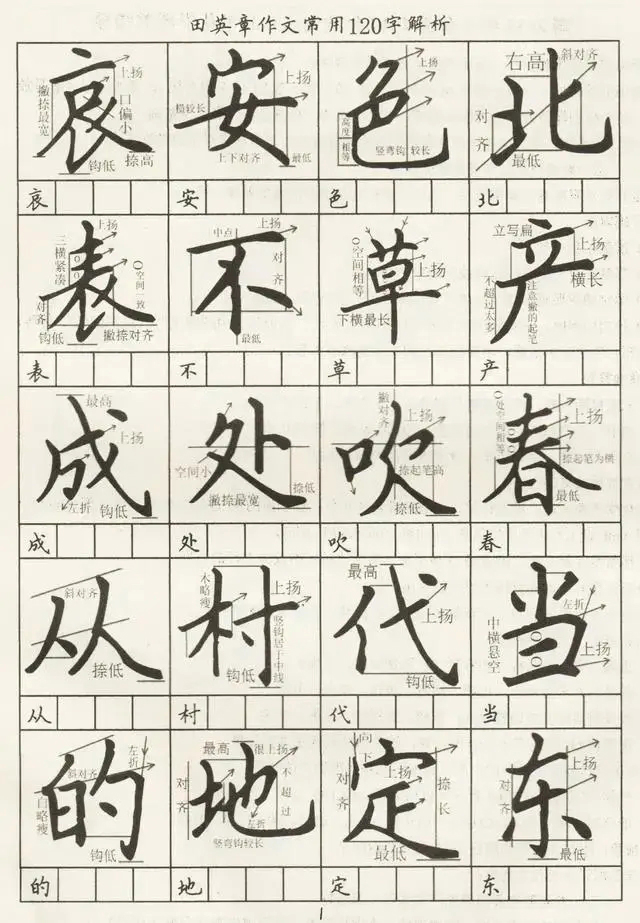 田英章作文常用120字解析
哀 上扬 撇捺最宽 口偏小 钩低 捺高
安 上扬 横较长 上下对齐 最低
色 上扬 高度相等 竖弯钩较长
北 右高 斜对齐 对齐 最低
哀 安 色 北
表 上扬 三横紧凑 空间一致 对齐 钩低 撇捺对齐
不 中点 上扬 对齐 最低
草 空间相等 上扬 下横最长
产 立写扁 上扬 横长 不超过太多 注意撇的起笔
表 不 草 产
成 最高 上扬 左折 钩低
处 空间小 撇捺最宽 捺低
吹 撇对齐 上扬 捺起笔高 捺低
春 处空间相等 上扬 捺起笔为横 最低
成 处 吹 春
从 斜对齐 捺低
村 木略瘦 上扬 竖钩居于中线 钩低
代 最高 上扬 钩低
当 左折 中横悬空 上扬
从 村 代 当
的 左折 斜对齐 白略瘦 钩低
地 最高 很上扬 对齐 不超过 左折 竖弯钩较长
定 向下 上扬 对齐 捺长 最低
东 上扬 对齐 最低
的 地 定 东
1